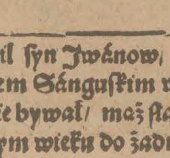 il syn Jwánow,
em Sánguſkim
że bywał/ mąż ſta
ym wieku do żad